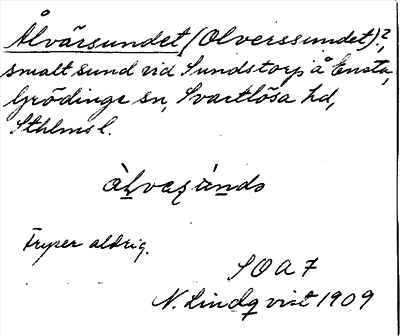 Ålvärsundet (Olverssundet)?,
smalt sund vid Sundstorp å Ensta,
Grödinge sn, Svartlösa hd,
Sthlms l.
Fryser aldrig.
SOAF
N. Lindqvist 1909